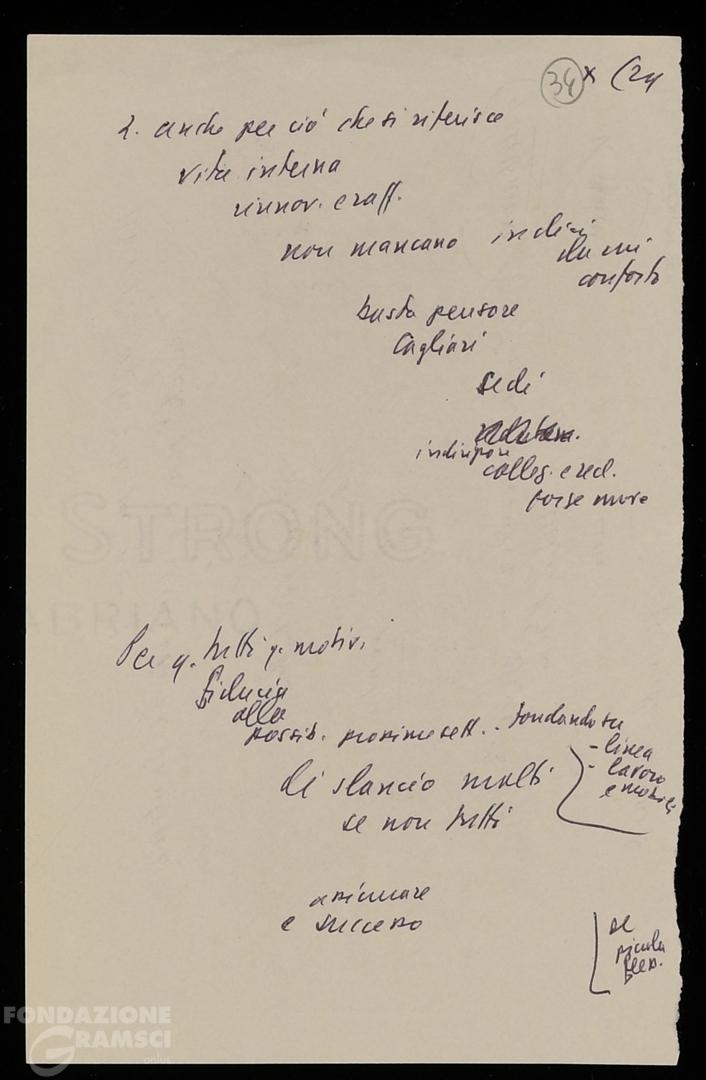 34 x (24
2. anche per ciò che si riferisce
vita interna
rinnov. e raff.
non mancano indici
da cui
conforto
basta pensare
Cagliari
sedi
colleg. e red.
forse more
STRONG
ABRIANO
Per q. tutti q. motivi
fiducia
alla
possib. prossime sett. fondando su
- linea
- lavoro
e mobili
di slancio molti
se non tutti
assicurare
e successo
se
piccola
FONDAZIONE
GRAMSCI
onlus